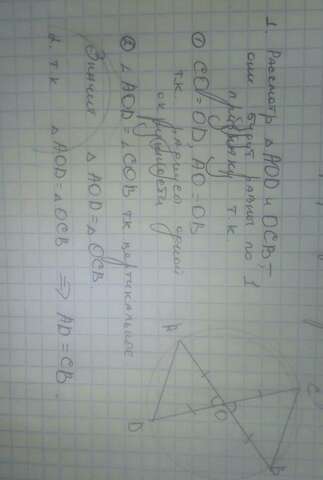 1. Рассмотр △AOD и OCB, т
они будут равны по 1
признаку т.к.
① CO=OD, AO=OB
т.к. радиусы одной
окружности
② △AOD=△COB тк вертикальные
Значит △AOD=△OCB
2. т.к △AOD=△OCB ⇒ AD=CB.
A
C
O
D
B